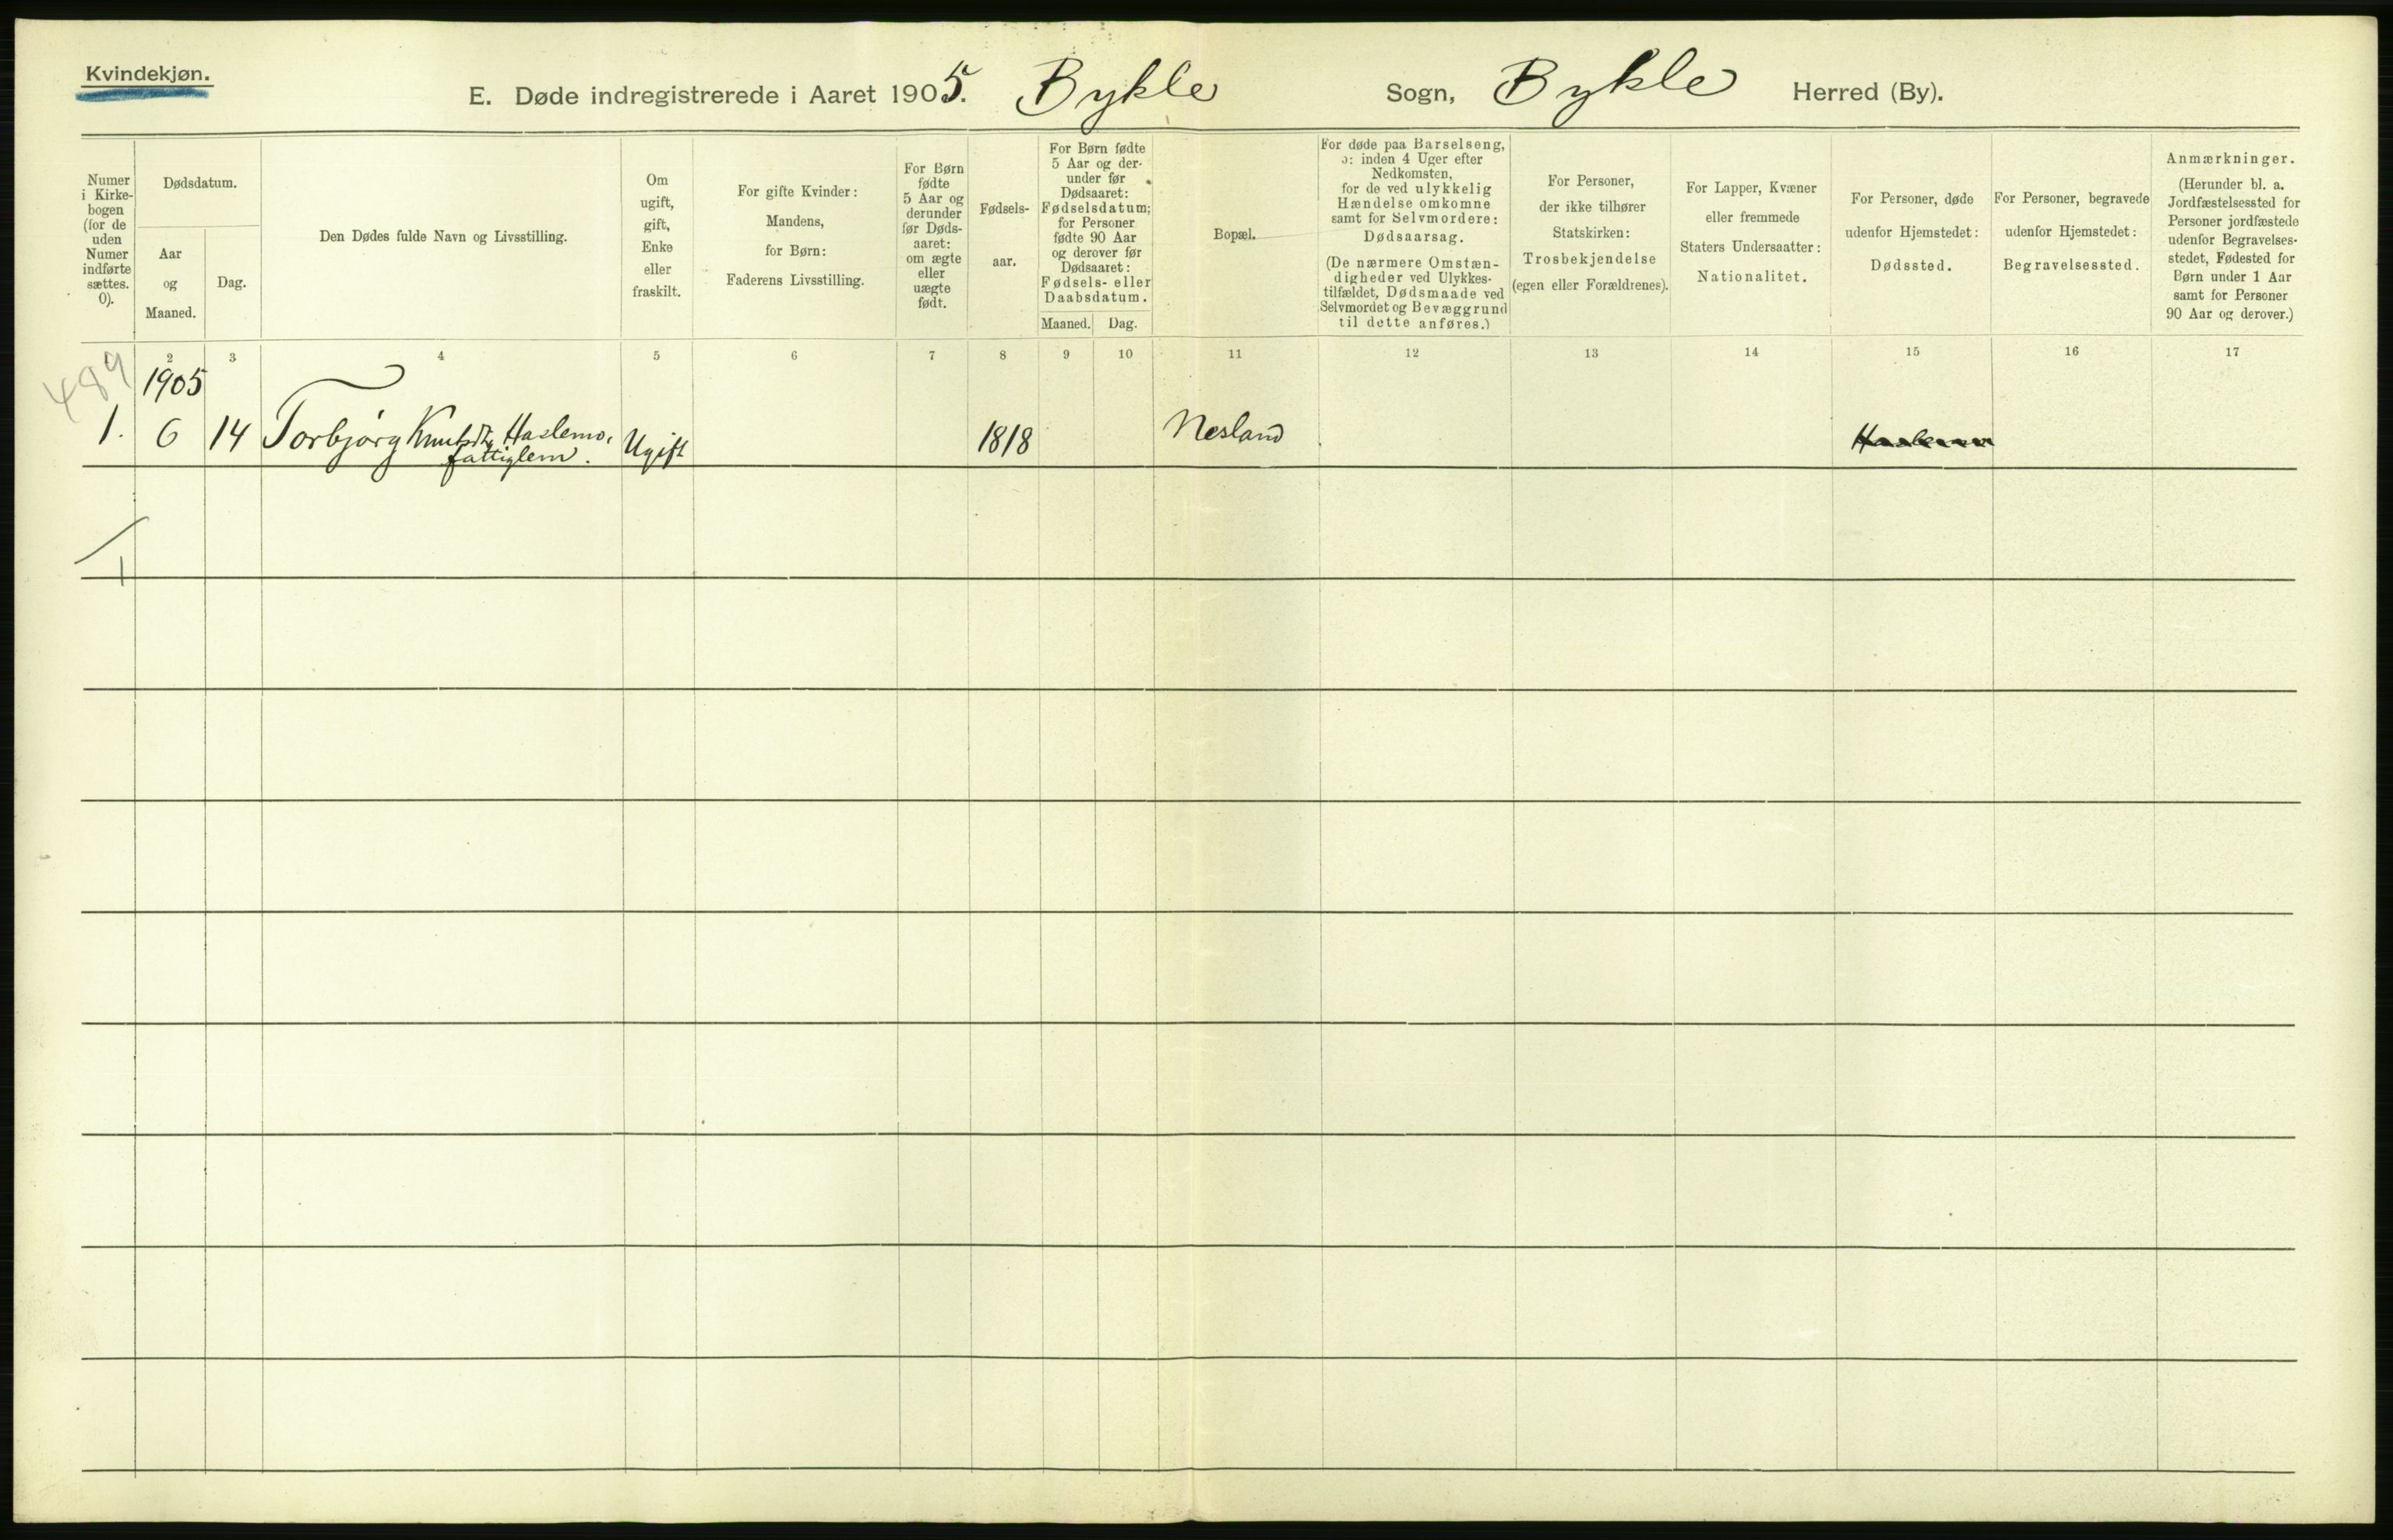 Kvindekjøn.
E. Døde indregistrerede i Aaret 1905. Bykle Sogn, Bykle Herred (By).
Numer
i Kirke-
bogen
(for de
uden
Numer
indførte
sættes.
0).
Dødsdatum.
Aar
og
Maaned.
Dag.
Den Dødes fulde Navn og Livsstilling.
Om
ugift,
gift,
Enke
eller
fraskilt.
For gifte Kvinder:
Mandens,
for Børn:
Faderens Livsstilling.
For Børn
fødte
5 Aar og
derunder
før Døds-
aaret:
om ægte
eller
uægte
født.
Fødsels-
aar.
For Børn fødte
5 Aar og der-
under før
Dødsaaret:
Fødselsdatum;
for Personer
fødte 90 Aar
og derover før
Dødsaaret:
Fødsels- eller
Daabsdatum.
Maaned. Dag.
Bopæl.
For døde paa Barselseng,
ɔ: inden 4 Uger efter
Nedkomsten,
for de ved ulykkelig
Hændelse omkomne
samt for Selvmordere:
Dødsaarsag.
(De nærmere Omstæn-
digheder ved Ulykkes-
tilfældet, Dødsmaade ved
Selvmordet og Bevæggrund
til dette anføres.)
For Personer,
der ikke tilhører
Statskirken:
Trosbekjendelse
(egen eller Forældrenes).
For Lapper, Kvæner
eller fremmede
Staters Undersaatter:
Nationalitet.
For Personer, døde
udenfor Hjemstedet:
Dødssted.
For Personer, begravede
udenfor Hjemstedet:
Begravelsessted.
Anmærkninger.
(Herunder bl. a.
Jordfæstelsessted for
Personer jordfæstede
udenfor Begravelses-
stedet, Fødested for
Børn under 1 Aar
samt for Personer
90 Aar og derover.)
1 2 3 4 5 6 7 8 9 10 11 12 13 14 15 16 17
489
1905
1. 6 14 Torbjørg Knutsdtr. Haslemo, Ugift 1818 Nesland
fattiglem.
1